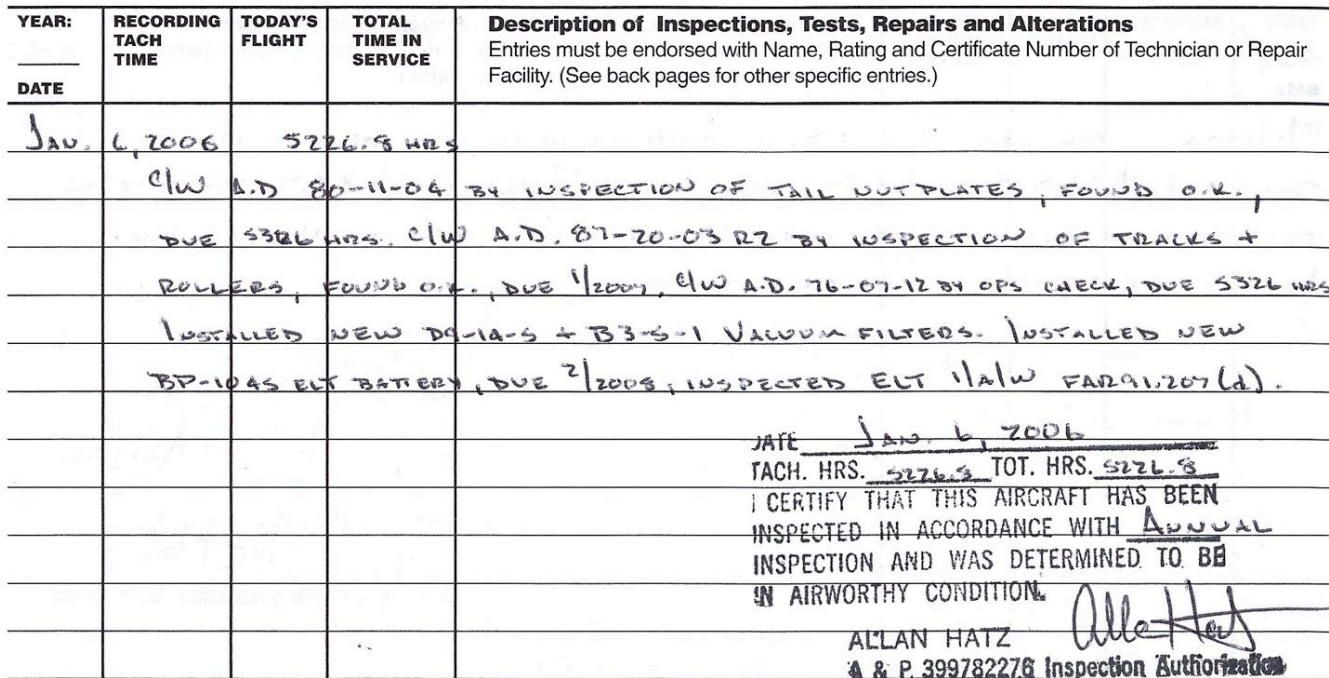 YEAR:
DATE
RECORDING TACH TIME
TODAY'S FLIGHT
TOTAL TIME IN SERVICE
Description of Inspections, Tests, Repairs and Alterations
Entries must be endorsed with Name, Rating and Certificate Number of Technician or Repair
Facility. (See back pages for other specific entries.)
JAN. 6, 2006 5226.8 HRS
C/W A.D 80-11-04 BY INSPECTION OF TAIL NUTPLATES, FOUND O.K.,
DUE 5326 HRS. C/W A.D. 87-20-03 R2 BY INSPECTION OF TRACKS +
ROLLERS, FOUND O.K., DUE 1/2007, C/W A.D. 76-07-12 BY OPS CHECK, DUE 5326 HRS
INSTALLED NEW D9-14-5 + B3-5-1 VACUUM FILTERS. INSTALLED NEW
BP-1045 ELT BATTERY, DUE 2/2008, INSPECTED ELT I/A/W FAR91.207(d).
DATE JAN. 6, 2006
TACH. HRS. 5226.8 TOT. HRS. 5226.8
I CERTIFY THAT THIS AIRCRAFT HAS BEEN
INSPECTED IN ACCORDANCE WITH ANNUAL
INSPECTION AND WAS DETERMINED TO BE
IN AIRWORTHY CONDITION.
ALLAN HATZ
A & P 399782276 Inspection Authorization